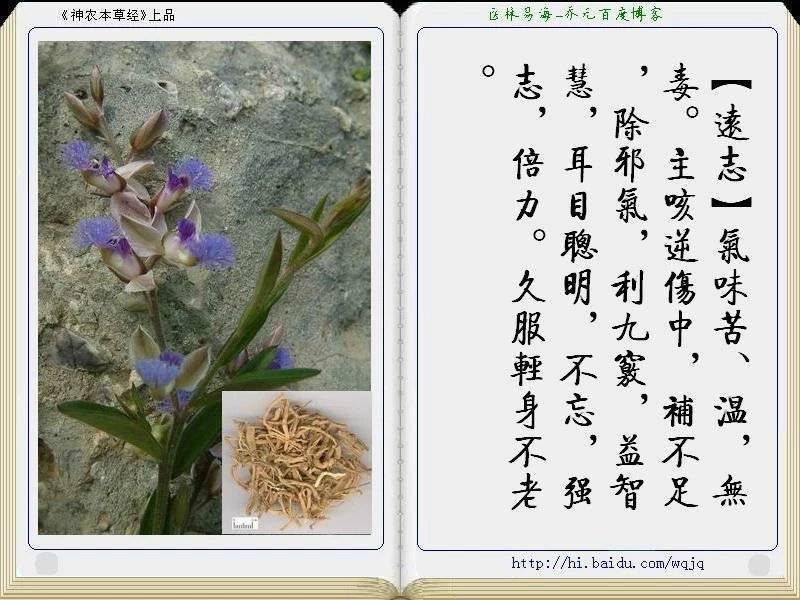 《神农本草经》上品
医林易海-乔元百度博客
【遠志】氣味苦、溫，無
毒。主咳逆傷中，補不足
，除邪氣，利九竅，益智
慧，耳目聰明，不忘，强
志，倍力。久服輕身不老
。
http://hi.baidu.com/wqjq